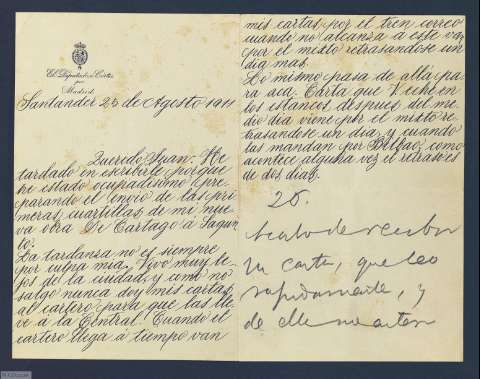 El Diputado a Cortes
por
Madrid
Santander 25 de Agosto 1911
Querido Juan: He
tardado en escribirte porque
he estado ocupadísimo pre-
parando el envio de las pri-
meras cuartillas de mi nue-
va obra De Cartago á Sagun-
to.
La tardanza no es siempre
por culpa mia. Vivo muy le-
jos de la ciudad, y como no
salgo nunca doy mis cartas
al cartero para que las lle-
ve á la Central. Cuando el
cartero llega á tiempo van
mis cartas por el tren correo
cuando no alcanza á este van
por el mixto retrasandose un
dia mas.
Lo mismo pasa de allá pa-
ra acá. Carta que V. eche en
los estancos despues del me-
dio dia viene por el mixto re-
trasandose un dia, y cuando
las mandan por Bilbao, como
acontece alguna vez el retraso es
de dos dias.
25.
Acabo de recibir
su carta, que leo
rapidamente, y
de ella me entero